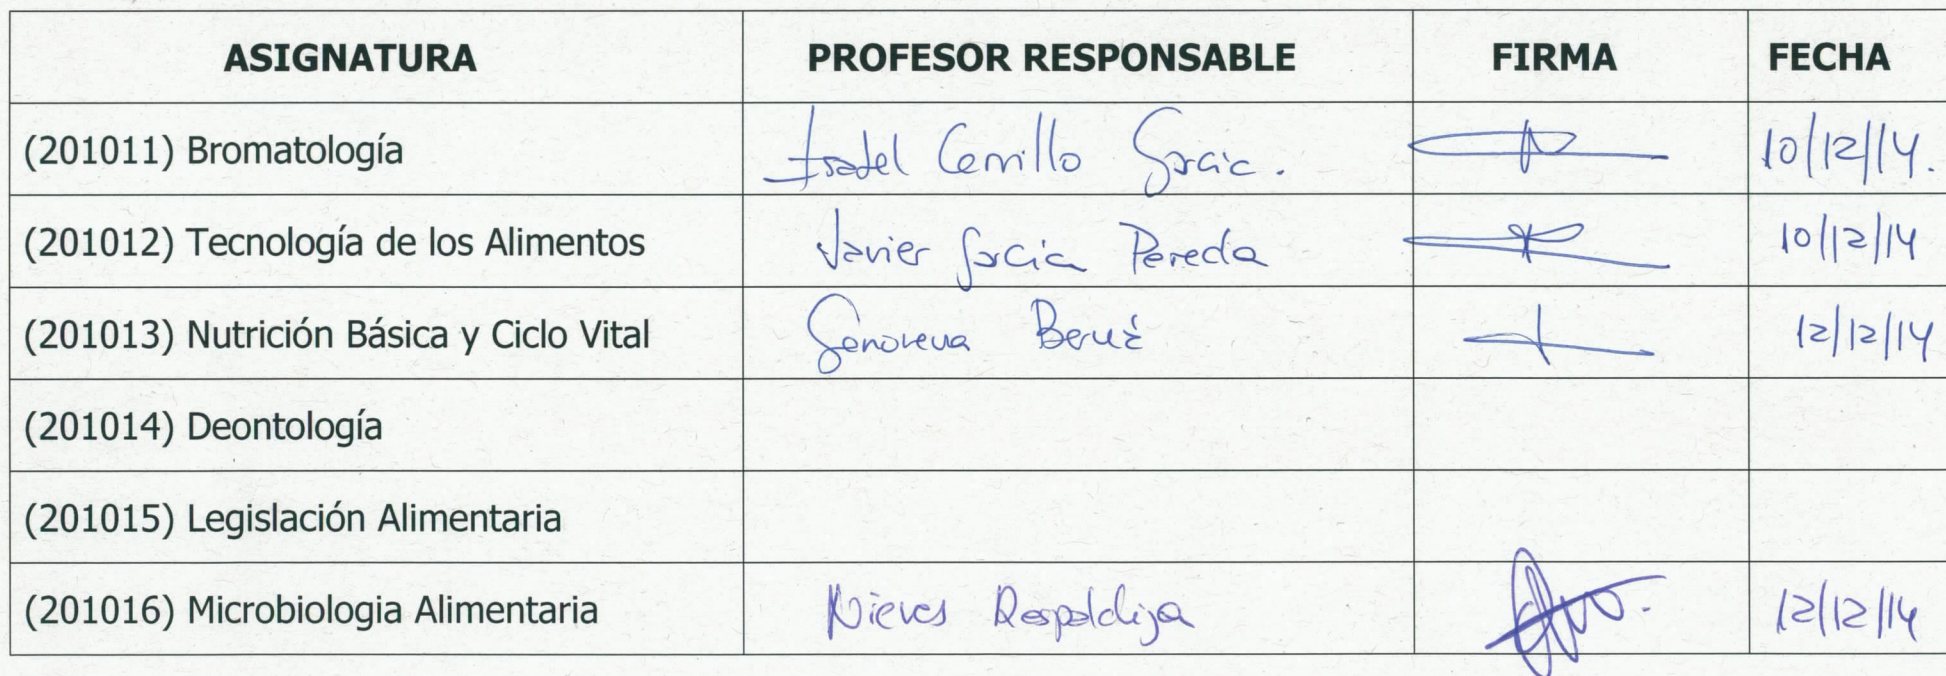 ASIGNATURA PROFESOR RESPONSABLE FIRMA FECHA
(201011) Bromatología Isabel Cerrillo García. 10/12/14.
(201012) Tecnología de los Alimentos Javier García Pereda 10/12/14
(201013) Nutrición Básica y Ciclo Vital Genoveva Berná 12/12/14
(201014) Deontología
(201015) Legislación Alimentaria
(201016) Microbiologia Alimentaria Nieves Respaldiza 12/12/14